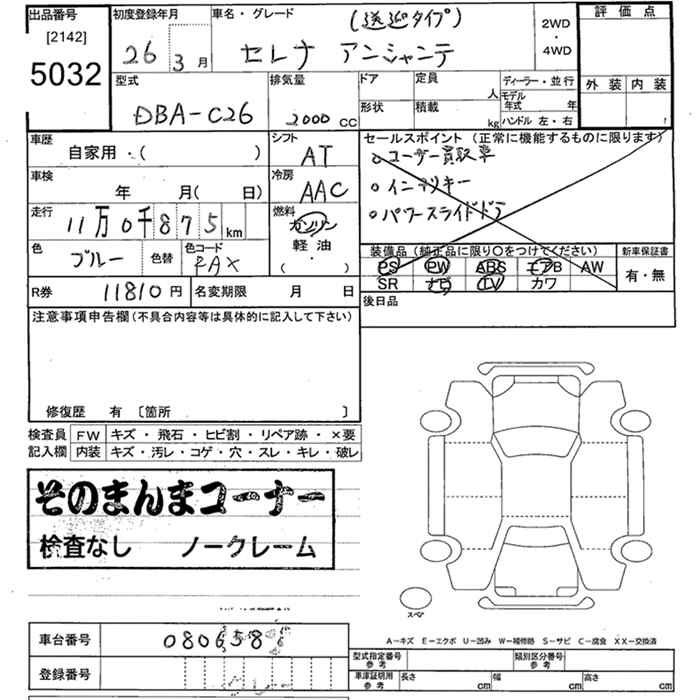 出品番号 初度登録年月 車名・グレード (送迎タイプ) 2WD ・ 4WD 評価点
[2142]
5032
26年 3月 セレナ アンシャンテ
型式 排気量 ドア 定員 人 ディーラー・並行 外装 内装
DBA-C26 2000 CC 形状 積載 kg モデル年式 年
ハンドル 左・右
車歴 シフト セールスポイント(正常に機能するものに限ります)
自家用・( ) AT 。ユーザー買取車
車検 冷房 。インテリキー
年 月( 日) AAC 。パワースライドドア
走行 燃料
11万0千875km ガソリン
色 色替 色コード 軽油 装備品(純正品に限り〇をつけてください) 新車保証書
ブルー RAX ・( ) PS PW ABS エアB AW 有・無
SR ナビ TV カワ
R券 11810円 名変期限 月 日 後日品
注意事項申告欄(不具合内容等は具体的に記入して下さい)
修復歴 有 [箇所 ]
検査員 FW キズ・飛石・ヒビ割・リペア跡・×要
記入欄 内装 キズ・汚レ・コゲ・穴・スレ・キレ・破レ
そのまんまコーナー
検査なし ノークレーム
スペア
A-キズ E-エクボ U-凹み W-補修跡 S-サビ C-腐食 XX-交換済
車台番号 型式指定番号 参考 類別区分番号 参考
登録番号 車庫証明用 参考 長さ cm 幅 cm 高さ cm